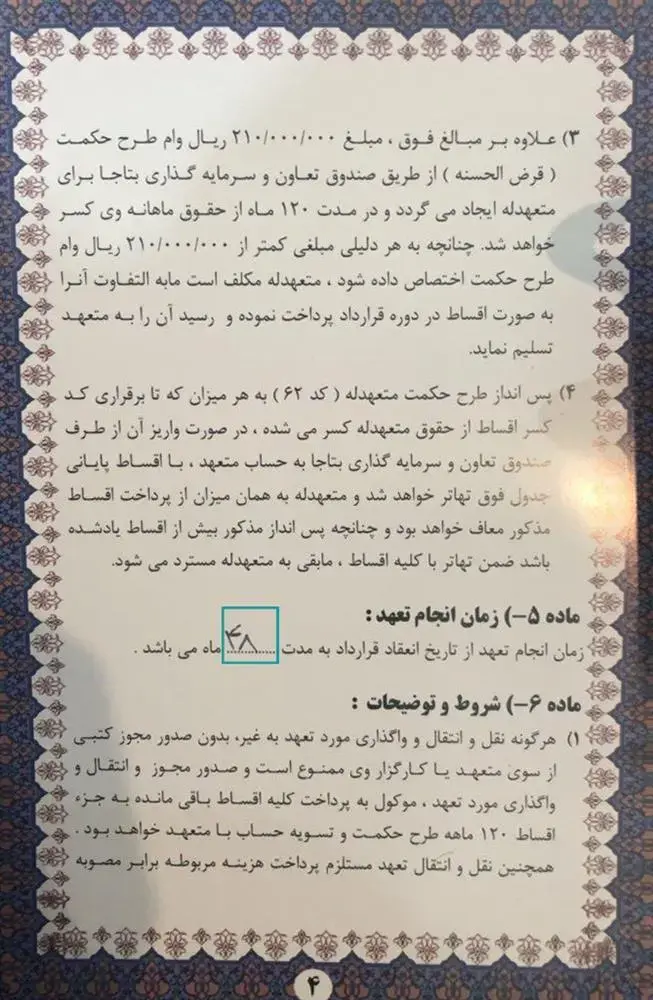 ۳) علاوه بر مبالغ فوق ، مبلغ ۲۱۰/۰۰۰/۰۰۰ ریال وام طرح حکمت
( قرض الحسنه ) از طریق صندوق تعاون و سرمایه گذاری بتاجا برای
متعهدله ایجاد می گردد و در مدت ۱۲۰ ماه از حقوق ماهانه وی کسر
خواهد شد. چنانچه به هر دلیلی مبلغی کمتر از ۲۱۰/۰۰۰/۰۰۰ ریال وام
طرح حکمت اختصاص داده شود ، متعهدله مکلف است مابه التفاوت آنرا
به صورت اقساط در دوره قرارداد پرداخت نموده و رسید آن را به متعهد
تسلیم نماید.
۴) پس انداز طرح حکمت متعهدله ( کد ۶۲ ) به هر میزان که تا برقراری کد
کسر اقساط از حقوق متعهدله کسر می شده ، در صورت واریز آن از طرف
صندوق تعاون و سرمایه گذاری بتاجا به حساب متعهد ، با اقساط پایانی
جدول فوق تهاتر خواهد شد و متعهدله به همان میزان از پرداخت اقساط
مذکور معاف خواهد بود و چنانچه پس انداز مذکور بیش از اقساط یادشده
باشد ضمن تهاتر با کلیه اقساط ، مابقی به متعهدله مسترد می شود.
ماده ۵–) زمان انجام تعهد :
زمان انجام تعهد از تاریخ انعقاد قرارداد به مدت ۴۸ ماه می باشد .
ماده ۶–) شروط و توضیحات :
۱) هرگونه نقل و انتقال و واگذاری مورد تعهد به غیر، بدون صدور مجوز کتبی
از سوی متعهد یا کارگزار وی ممنوع است و صدور مجوز و انتقال و
واگذاری مورد تعهد ، موکول به پرداخت کلیه اقساط باقی مانده به جزء
اقساط ۱۲۰ ماهه طرح حکمت و تسویه حساب با متعهد خواهد بود .
همچنین نقل و انتقال تعهد مستلزم پرداخت هزینه مربوطه برابر مصوبه
۴